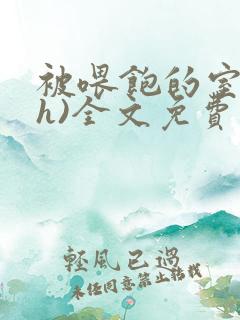 被喂飽的室
h)全文免費
輕風已過
未经同意禁止转载